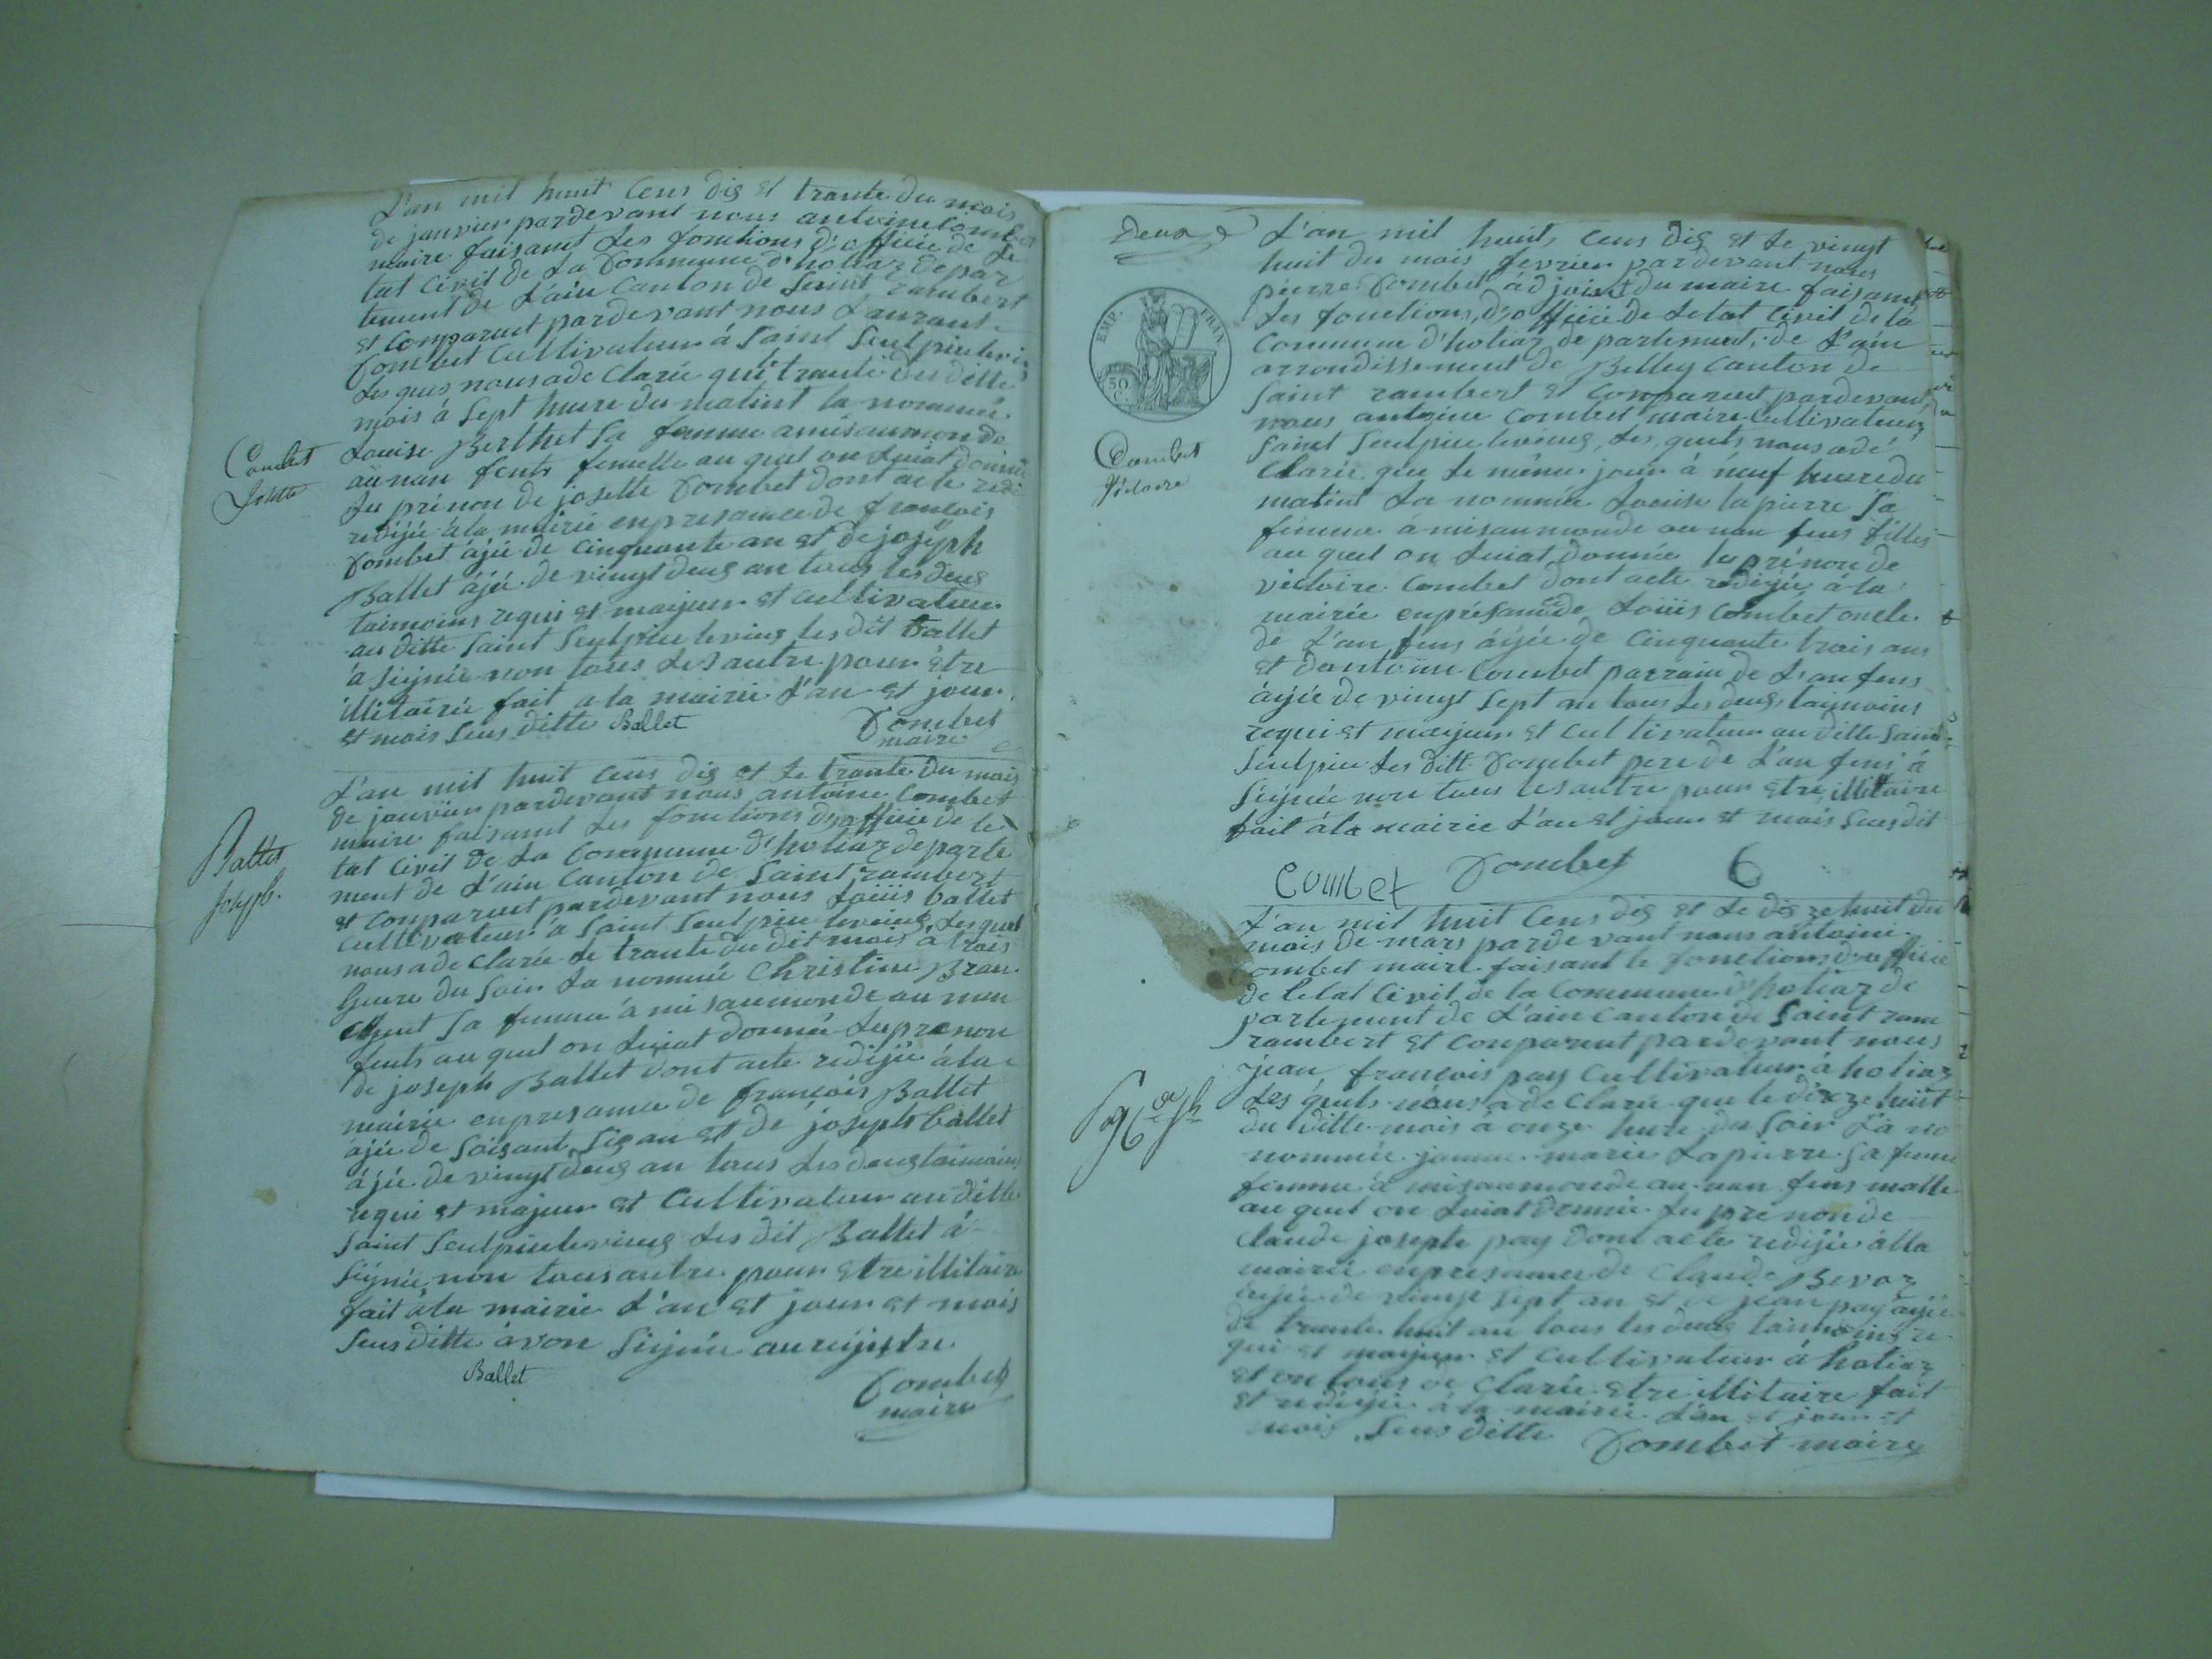 L'an mil huit cens dis et trante du mois
de janvier pardevant nous antoine Combet
maire faisant les fonctions d'officie de le
tat Civil de La Commune d'hotiaz depar
tement de L'ain Canton de Saint rambert
et Comparuet pardevant nous Laurant
Combet Cultivateur á Saint Seulpice
les ques nous ade Clarée qui trante du ditte
mois á Sept heure du matint la nommée
Louise Berthet Sa femme amis aumonde
aü nan fents femelle au quel on Luiat donnée
Combet
Josette
Lu prénon de josette Combet dont acte redi
redijée á la mairie enpresamce de francois
Combet ájée de cinquante an et de joseph
Ballet ájée de vingt deus an tous les deus
taimoins requi et maijeur et cultivateur
au ditte Saint Seulpice levieus les dit Ballet
á Signée non tous les autre pour être
illitairée fait a la mairie L'an et jour
et mois Seus ditte Ballet Combet
maire
L'an mil huit cens dis et le trante du mois
de janvier pardevant nous antoine Combet
maire faisant les fonctions d'officie de le
Ballet
Joseph.
tat Civil de La Commune d'hotiaz departe
ment de L'ain Canton de Saint rambert
et Comparuet pardevant nous Loüis ballet
Cultivateur á Saint Seulpice levieus les quel
nous ade Clarée le trante du dit mois á trois
heure du Soir La nommée Christine Bran
Sa femme á mi saumonde au nan
fents au quel on Luiat donnée Lu prenon
de joseph Ballet dont acte redijée á la
mairie enpresamce de francois Ballet
ájée de Soisant Sis an et de joseph ballet
ájée de vingt deus an tous les deus taimoins
requi et majeur et Cultivateur au ditte
Saint Seulpice levieus les dit Ballet á
Signée non tous autre pour etre illitaire
fait á la mairie L'an et jour et mois
Seus ditte avon Signée au rejistre
Ballet
Combet
maire
Deux
L'an mil huit cens dis et le vingt
huit du mois fevrier pardevant nous
pierre Combet adjoint du maire faisant
les fonctions d'officie de Letat Civil de la
EMP. FRAN
50 C.
Commune d'hotiaz departement de L'ain
arrondissement de Belley Canton de
Saint rambert et Comparuet pardevant
nous antoine Combet maire Cultivateur
Combet
Victoire
Saint Seulpice levieus, les quels nous adé
Clarée que le même jour á neuf heure du
matint La nommée Louise lapierre Sa
femme a mis aumonde au nan fens filles
au quel on Luiat donnée lu prénon de
victoire Combet dont acte redijée á la
mairie enprésamce de Loüis Combet oncle
de L'an fens ájée de Cinquante trois ans
et dantoine Combet parrain de L'an fens
ájée de vingt Sept an tous les deus taimoins
requi et maijeur et cultivateur au ditte Saint
Seulpice les ditt Combet pere de L'an fens á
Signée non tous les autre pour etre illitaire
fait á la mairie L'an et jour et mois Seus dit
Combet Combet 6
L'an mil huit Cens dis et le dis ze huit du
mois de mars pardevant nous antoine
Combet maire faisant le fonctions d'officie
de letat Civil de la Commune d'hotiaz de
partement de L'ain Canton de Saint ram
rambert et Comparuet pardevant nous
jean francois pay Cultivateur á hotiaz
Les quels nous a de Clarée que le dix ze huit
du ditte mois á onze heure du Soir La no
nommée janne marie Lapierre Sa femme
femme á mis aumonde au nan fens malle
au quel on Luiat donnée Lu pré non de
Claude joseph pay dont acte redijée á la
mairie enpresamce de Claude Bevoz
ájée de vingt Sept an et de jean pay ájée
de trante huit an tous les deus taimoins re
qui et maijeur et cultivateur á hotiaz
et on tous de Clarée etre illitaire fait
et redijée á la mairie L'an et jour et
mois Seus ditte Combet maire